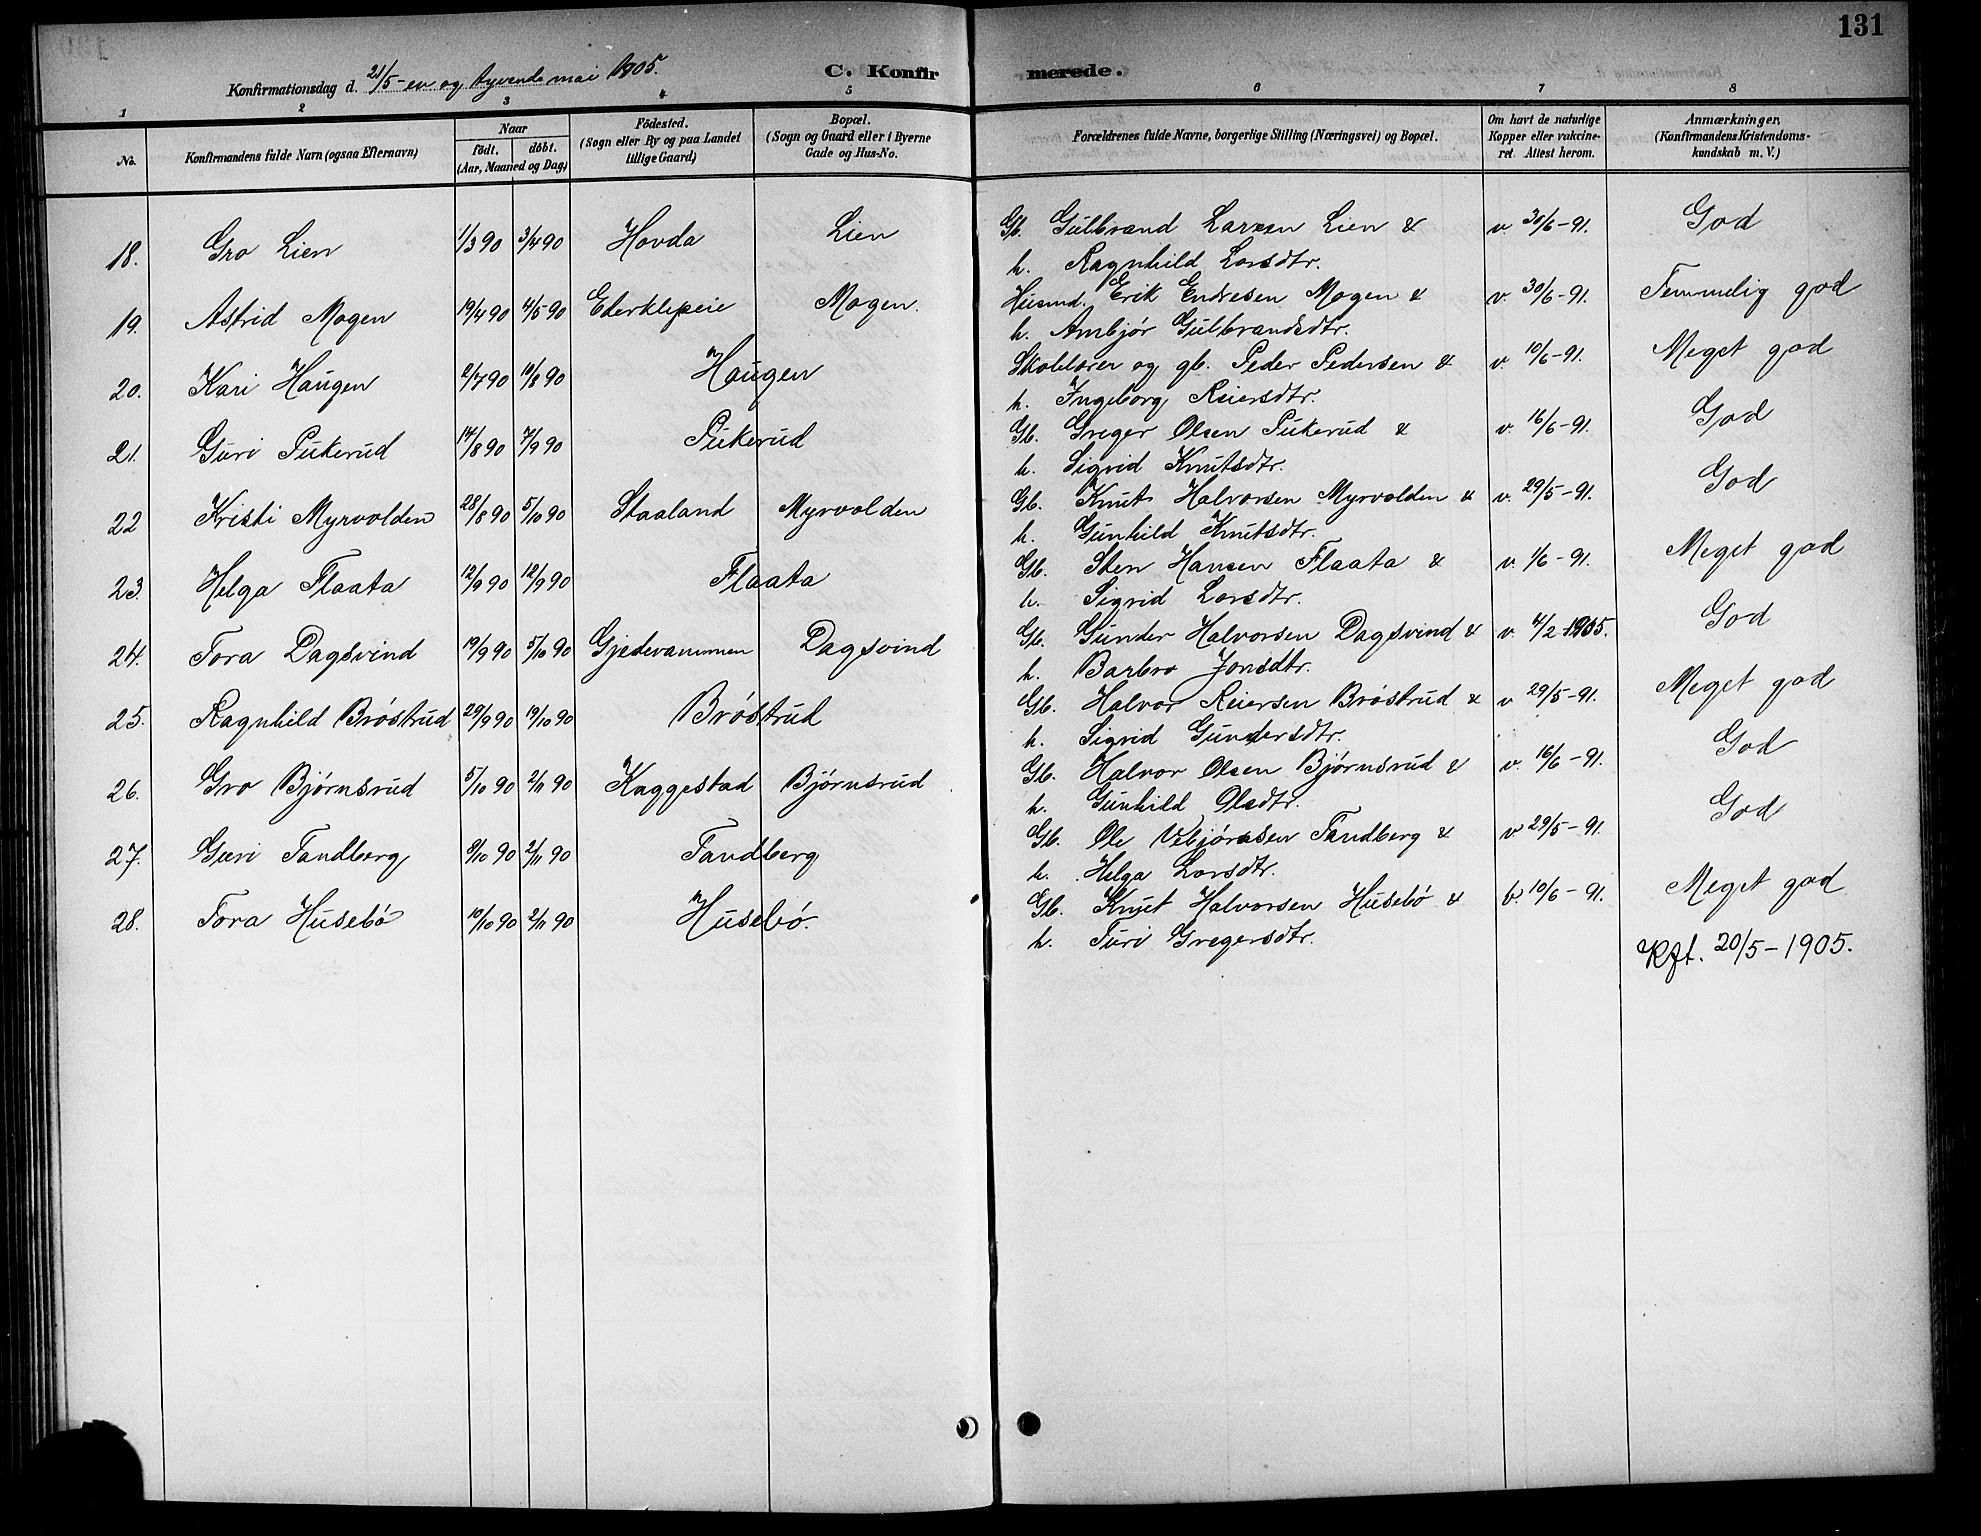 131
Konfirmationsdag d. 21/5 - en og tyvende mai 1905.
C. Konfirmerede.
1 2 3 4 5 6 7 8
No.
Konfirmandens fulde Navn (ogsaa Efternavn)
Naar
födt. döbt.
(Aar, Maaned og Dag)
Födested.
(Sogn eller By og paa Landet
tillige Gaard)
Bopæl.
(Sogn og Gaard eller i Byerne
Gade og Hus-No.
Forældrenes fulde Navne, borgerlige Stilling (Næringsvei) og Bopæl.
Om havt de naturlige
Kopper eller vakcine-
ret. Attest herom.
Anmærkninger,
(Konfirmandens Kristendoms-
kundskab m. V.)
18. Gro Lien 1/3 90 3/4 90 Hovda Lien Gb. Gulbrand Larsen Lien & v. 30/6-91. God
h. Ragnhild Larsdtr.
19. Astrid Mogen 19/4 90 4/5 90 Ederklepeie Mogen. Husmd. Erik Endresen Mogen & v. 30/6-91. Temmelig god
h. Ambjør Gulbrandsdtr.
20. Kari Haugen 2/7 90 10/8 90 Haugen Skolelærer og gb. Peder Pedersen & v. 10/6-91. Meget god
h. Ingeborg Reiersdtr.
21. Guri Pukerud 14/8 90 7/9 90 Pukerud Gb. Greger Olsen Pukerud & v. 16/6-91. God
h. Sigrid Knutsdtr.
22 Kristi Myrvolden 28/8 90 5/10 90 Staaland Myrvolden Gb. Knut Halvorsen Myrvolden & v. 29/5-91. God
h. Gunhild Knutsdtr.
23. Helga Flaata 12/9 90 12/9 90 Flaata Gb. Sten Hansen Flaata & v. 1/6-91. Meget god
h. Sigrid Larsdtr.
24. Tora Dagsvind 19/9 90 5/10 90 Gjedevammen Dagsvind Gb. Gunder Halvorsen Dagsvind & v. 4/2 1905. God
h. Barbro Jonsdtr.
25. Ragnhild Bröstrud 29/9 90 19/10 90 Bröstrud Gb. Halvor Reiersen Bröstrud & v 29/5-91. Meget god
h. Sigrid Gundersdtr.
26. Gro Bjørnsrud 5/10 90 2/11 90 Kaggestad Bjørnsrud Gb. Halvor Olsen Bjørnsrud & v. 16/6-91. God
h. Gunhild Olsdtr.
27. Guri Tandberg 8/10 90 2/11 90 Tandberg Gb. Ole Vebjørnsen Tandberg & v 29/5-91. God
h. Helga Larsdtr.
28. Tora Husebö 10/10 90 2/11 90 Husebö. Gb. Knut Halvorsen Husebö & v. 10/6-91. Meget god
h. Turi Gregersdtr.
Kft. 20/5-1905.